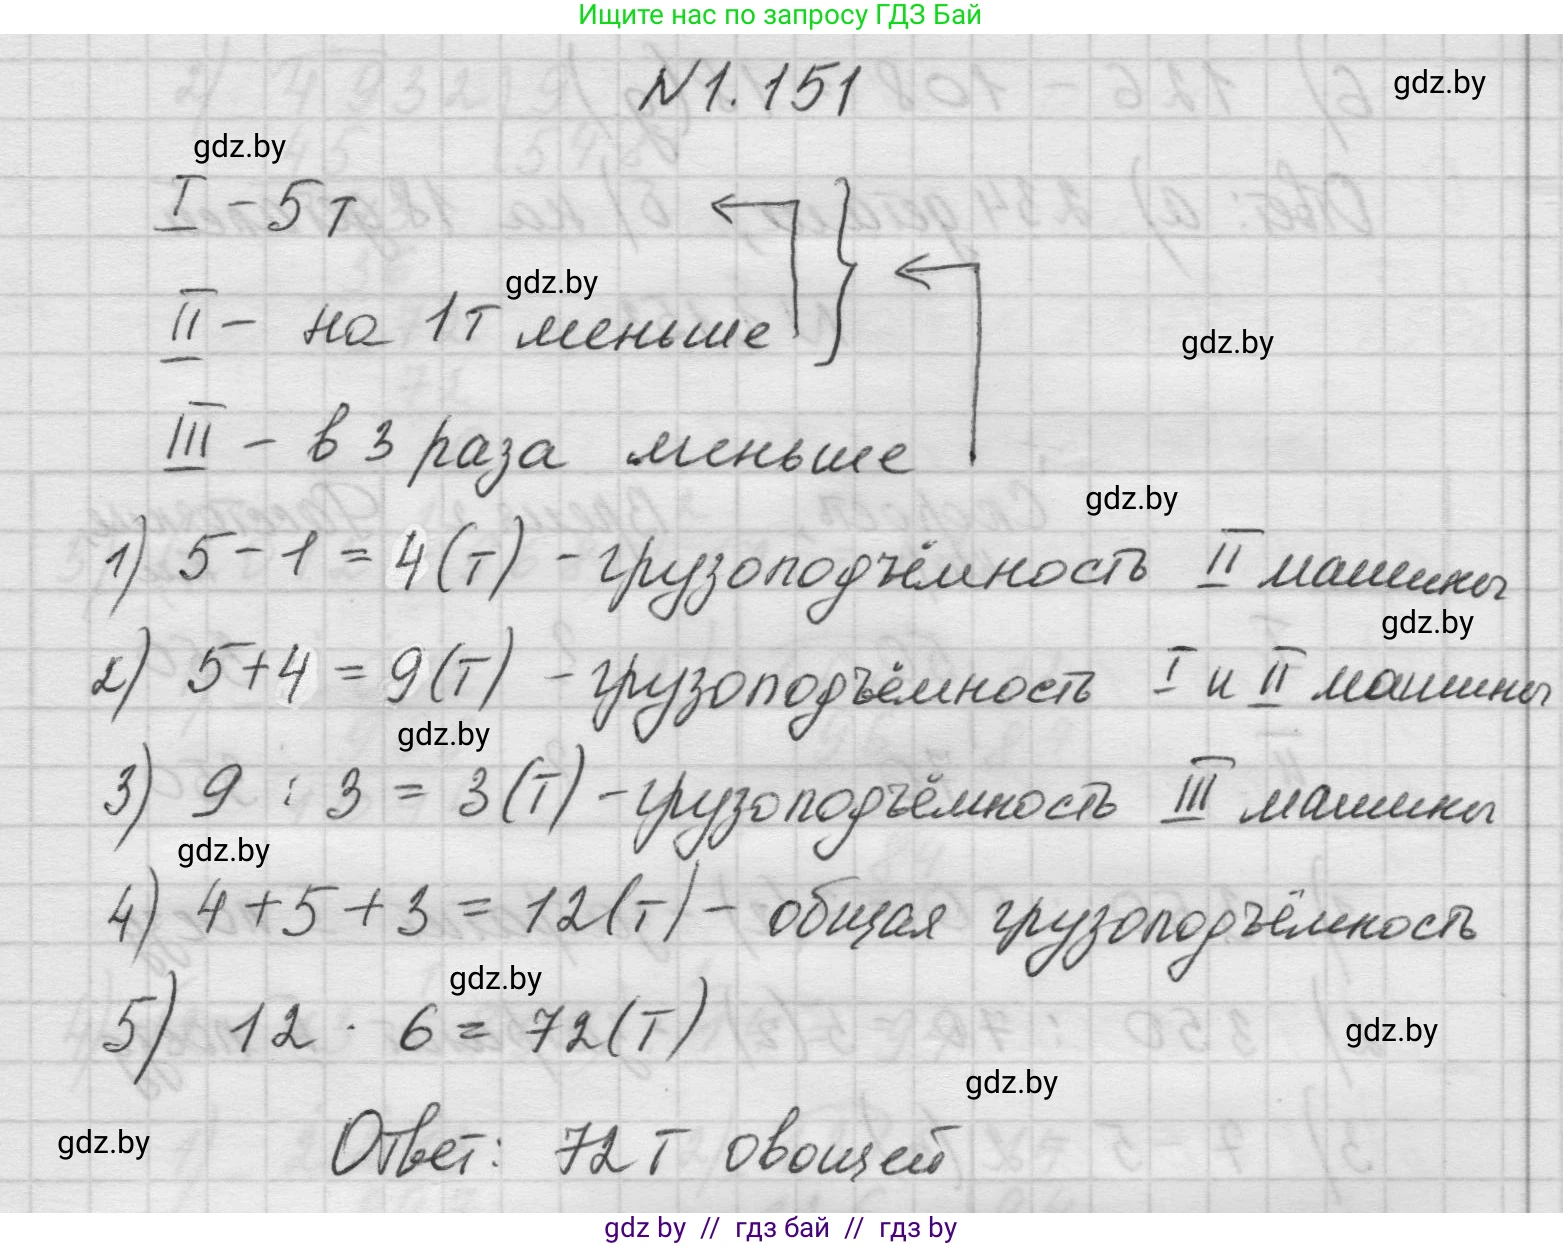 Ищите нас по запросу ГДЗ Бай
N1.151
gdz.by
gdz.by
I - 5 т
gdz.by
II - на 1т меньше
gdz.by
III - в 3 раза меньше
gdz.by
1) 5 - 1 = 4 (т) - грузоподъёмность II машины
gdz.by
2) 5 + 4 = 9 (т) - грузоподъёмность I и II машины
gdz.by
3) 9 : 3 = 3 (т) - грузоподъёмность III машины
gdz.by
4) 4 + 5 + 3 = 12 (т) - общая грузоподъёмность
gdz.by
5) 12 · 6 = 72 (т)
gdz.by
gdz.by
gdz.by
Ответ: 72 т овощей
gdz by // гдз бай // гдз by